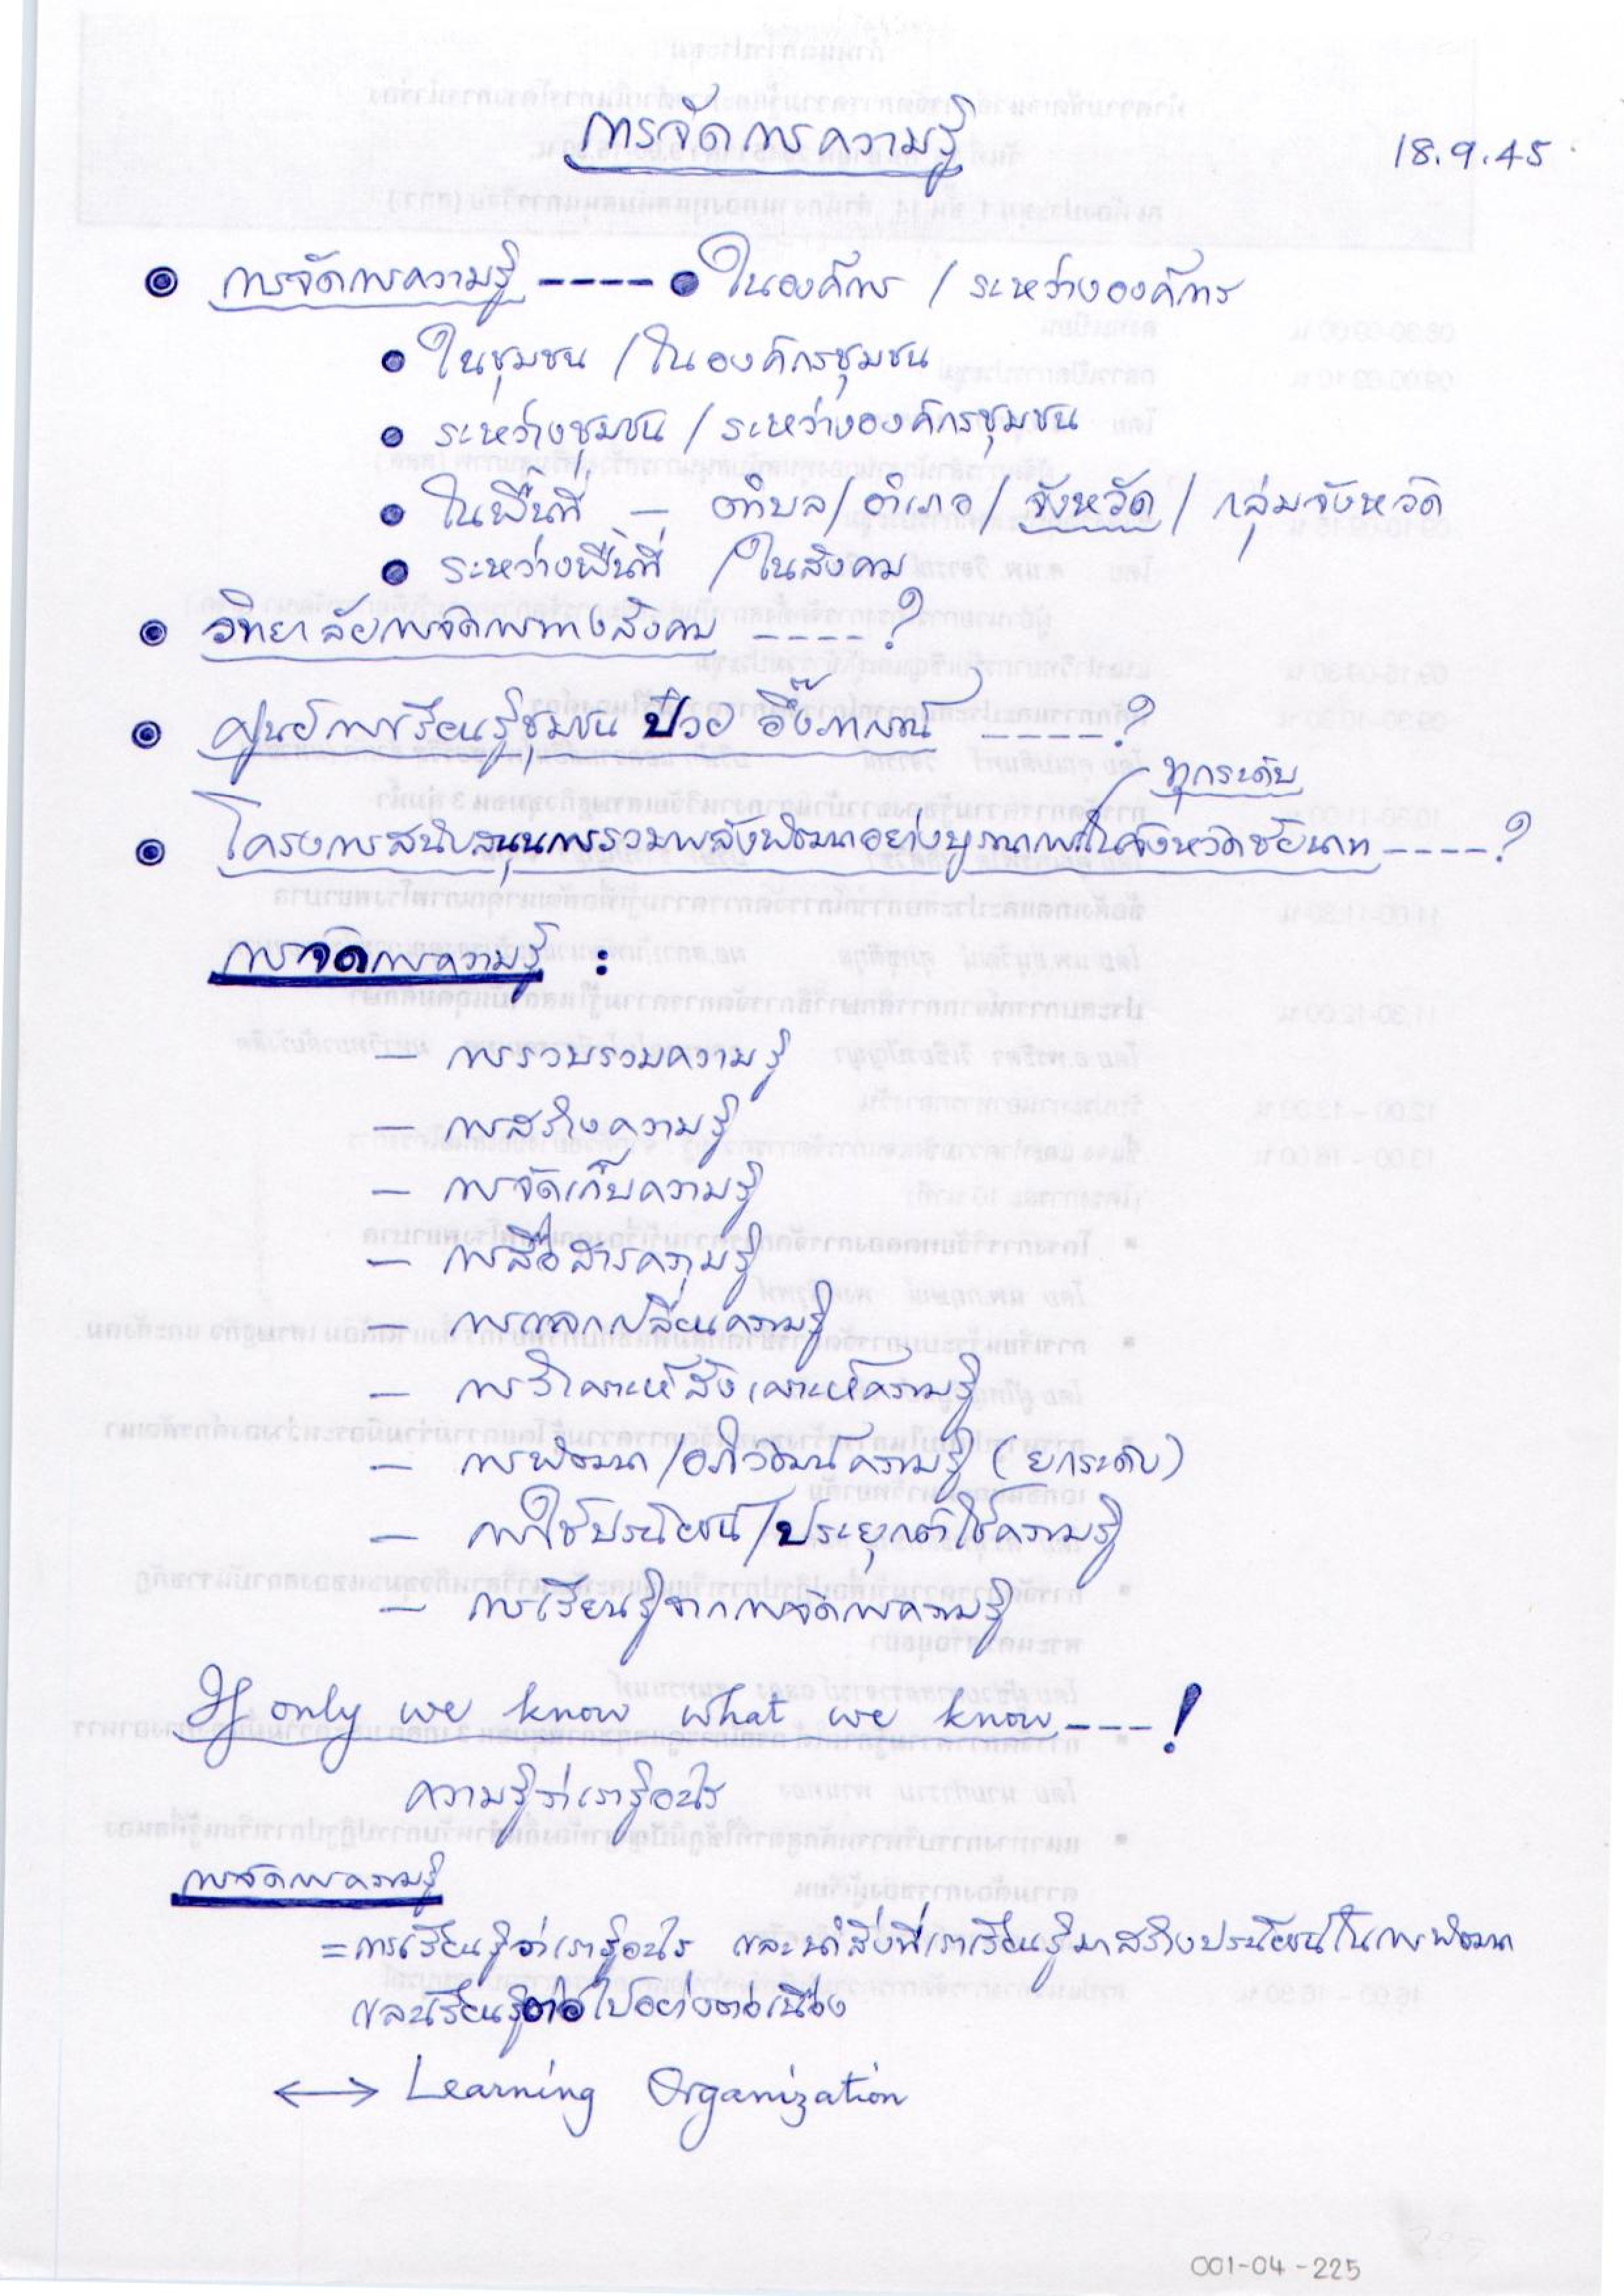 การจัดการความรู้
18.9.45
การจัดการความรู้ ---- • ในองค์กร / ระหว่างองค์กร
• ในชุมชน / ในองค์กรชุมชน
• ระหว่างชุมชน / ระหว่างองค์กรชุมชน
• ในพื้นที่ — ตำบล / อำเภอ / จังหวัด / กลุ่มจังหวัด
• ระหว่างพื้นที่ / ในสังคม
• วิทยาลัยการจัดการทางสังคม ----?
• ศูนย์การเรียนรู้ชุมชน ป๋วย อึ๊งภากรณ์ ----?
ทุกระดับ
• โครงการสนับสนุนการรวมพลังพัฒนาอย่างบูรณาการในจังหวัดชัยนาท ----?
การจัดการความรู้ :
— การรวบรวมความรู้
— การสร้างความรู้
— การจัดเก็บความรู้
— การสื่อสารความรู้
— การแลกเปลี่ยนความรู้
— การวิเคราะห์สังเคราะห์ความรู้
— การพัฒนา/อภิวัฒน์ความรู้ (ยกระดับ)
— การใช้ประโยชน์/ประยุกต์ใช้ความรู้
— การเรียนรู้จากการจัดการความรู้
If only we know what we know ---!
ความรู้ว่าเรารู้อะไร
การจัดการความรู้
= การเรียนรู้ว่าเรารู้อะไร และนำสิ่งที่เราเรียนรู้มาสร้างประโยชน์ในการพัฒนา
และเรียนรู้ต่อไปอย่างต่อเนื่อง
↔ Learning Organization
001-04-225